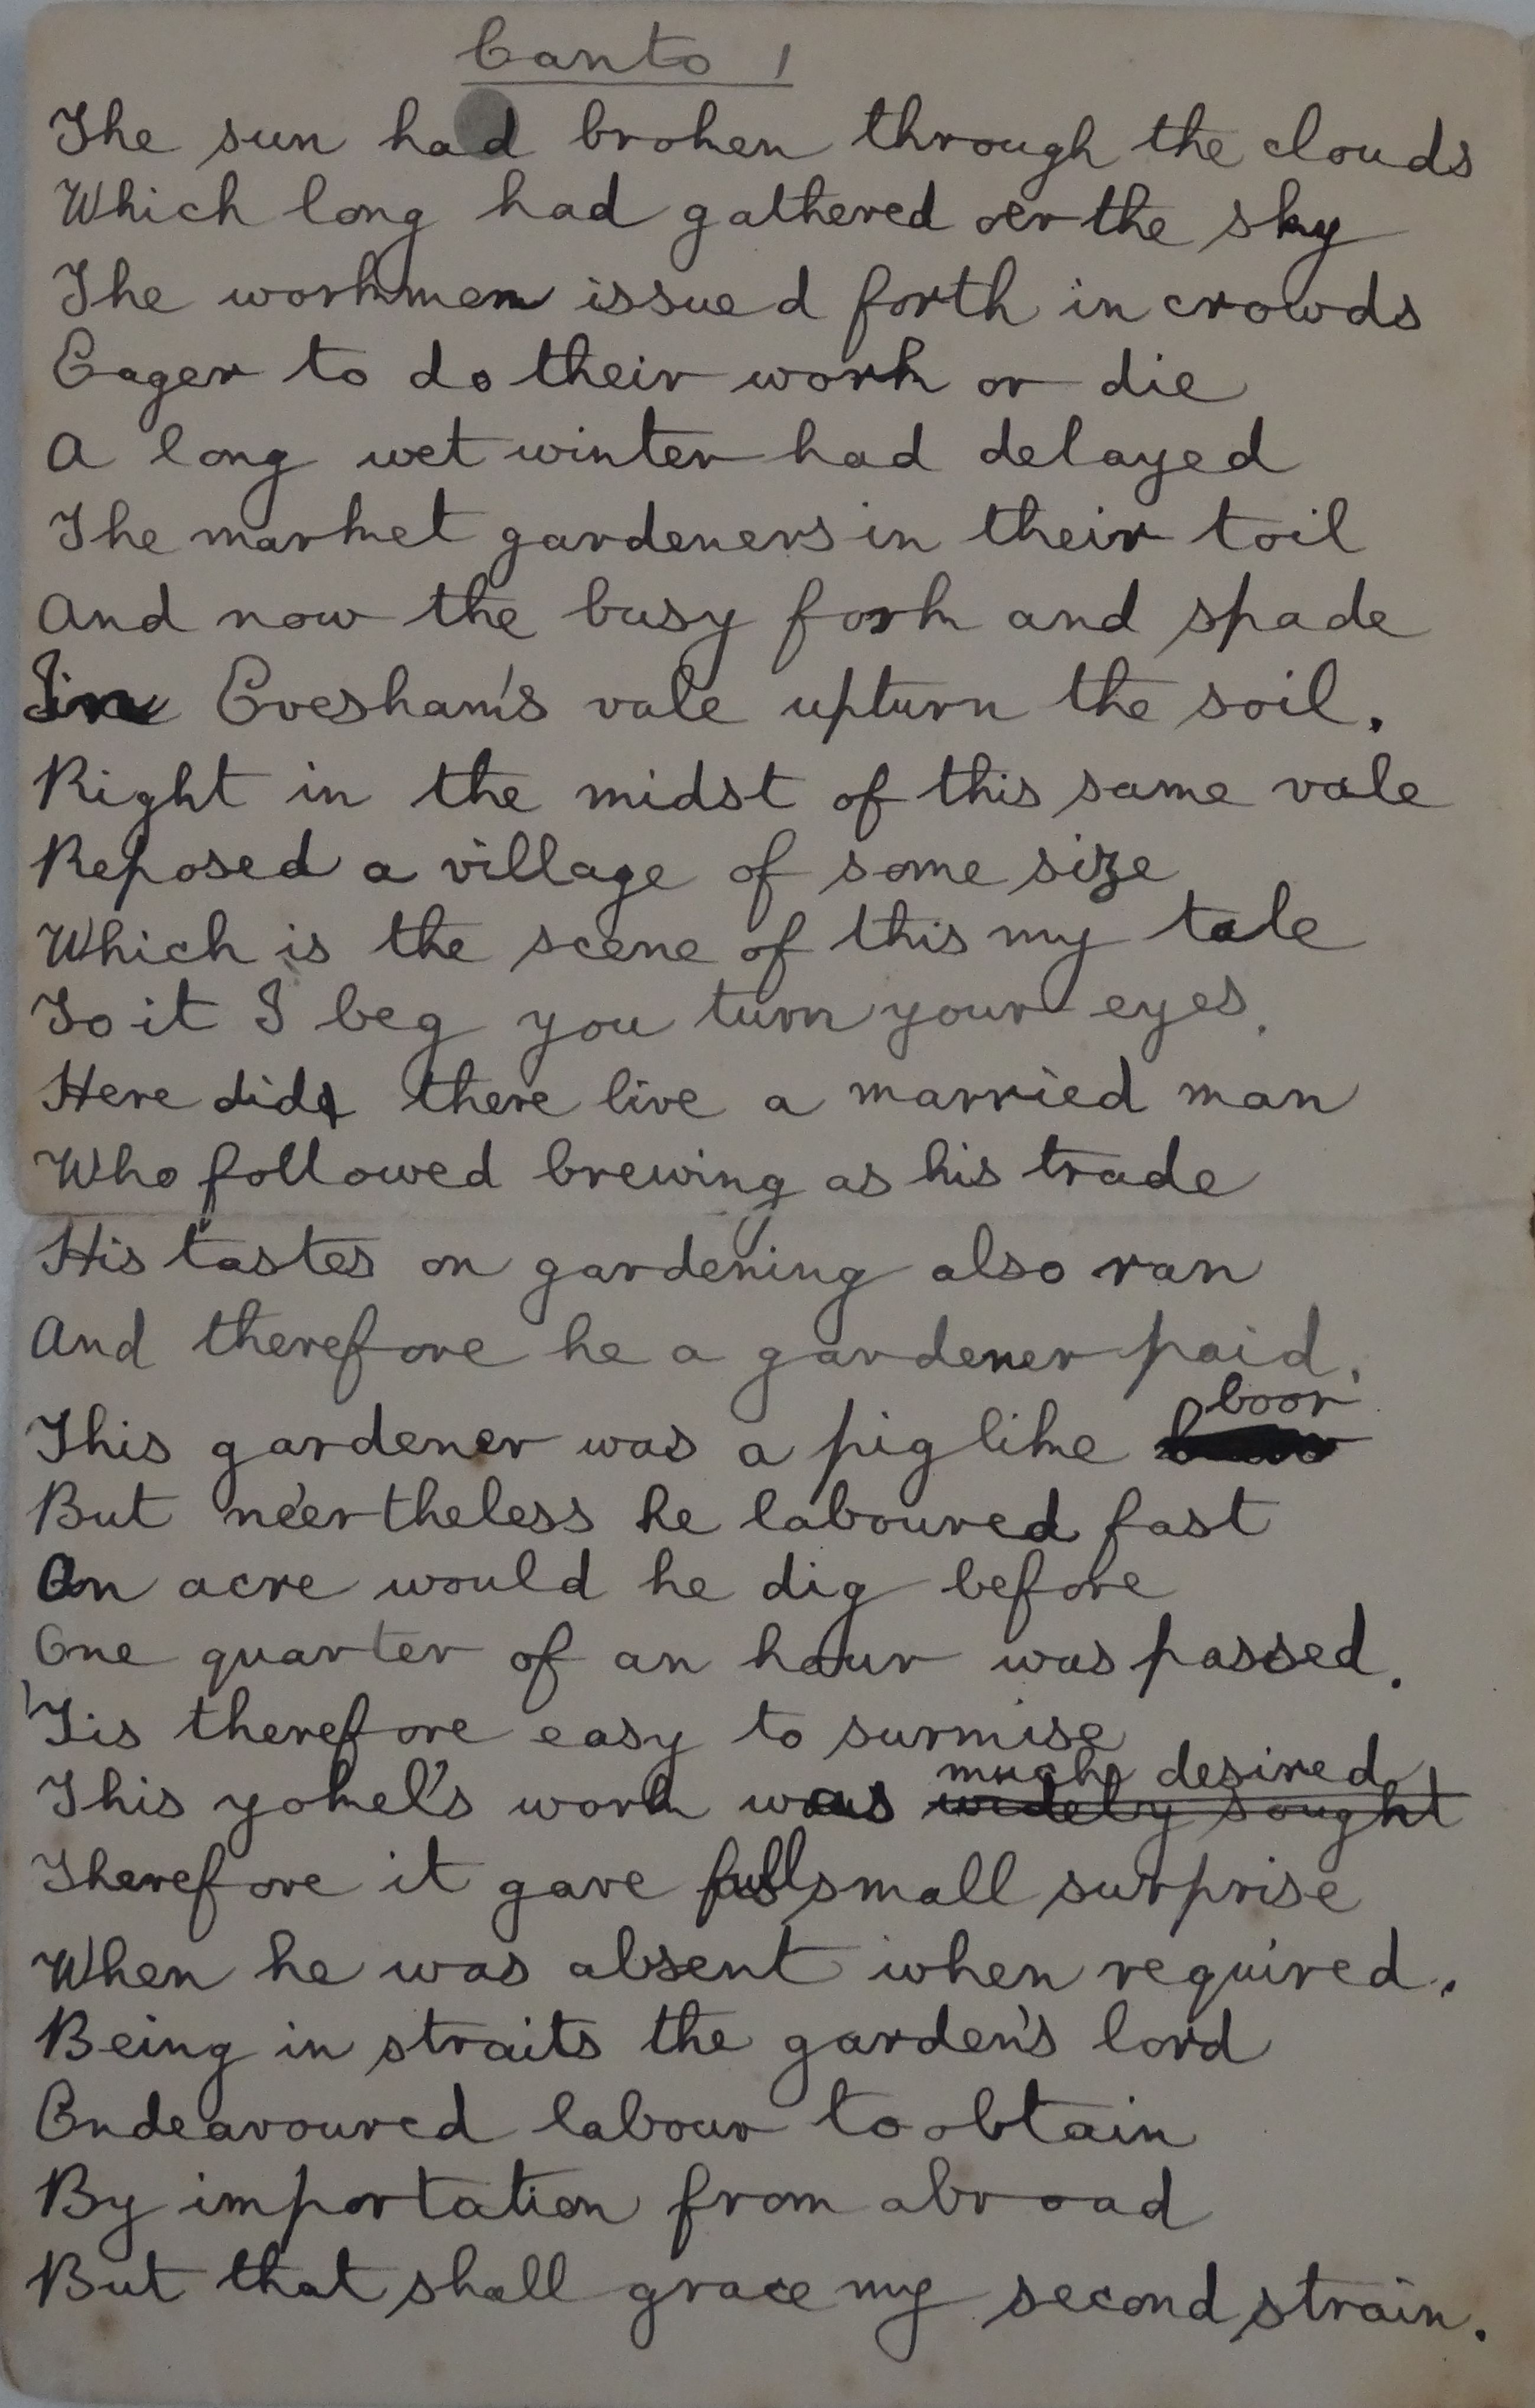 Canto 1
The sun had broken through the clouds
Which long had gathered oer the sky
The workmen issued forth in crowds
Eager to do their work or die
A long wet winter had delayed
The market gardeners in their toil
And now the busy fork and spade
In Evesham's vale upturn the soil.
Right in the midst of this same vale
Reposed a village of some size
Which is the scene of this my tale
To it I beg you turn your eyes.
Here did there live a married man
Who followed brewing as his trade
His tastes on gardening also ran
And therefore he a gardener paid.
boor
This gardener was a piglike
But ne'ertheless he laboured fast
An acre would he dig before
One quarter of an hour was passed.
'Tis therefore easy to surmise
much desired
This yokel's work was widely sought
Therefore it gave full small surprise
When he was absent when required.
Being in straits the garden's lord
Endeavoured labour to obtain
By importation from abroad
But that shall grace my second strain.